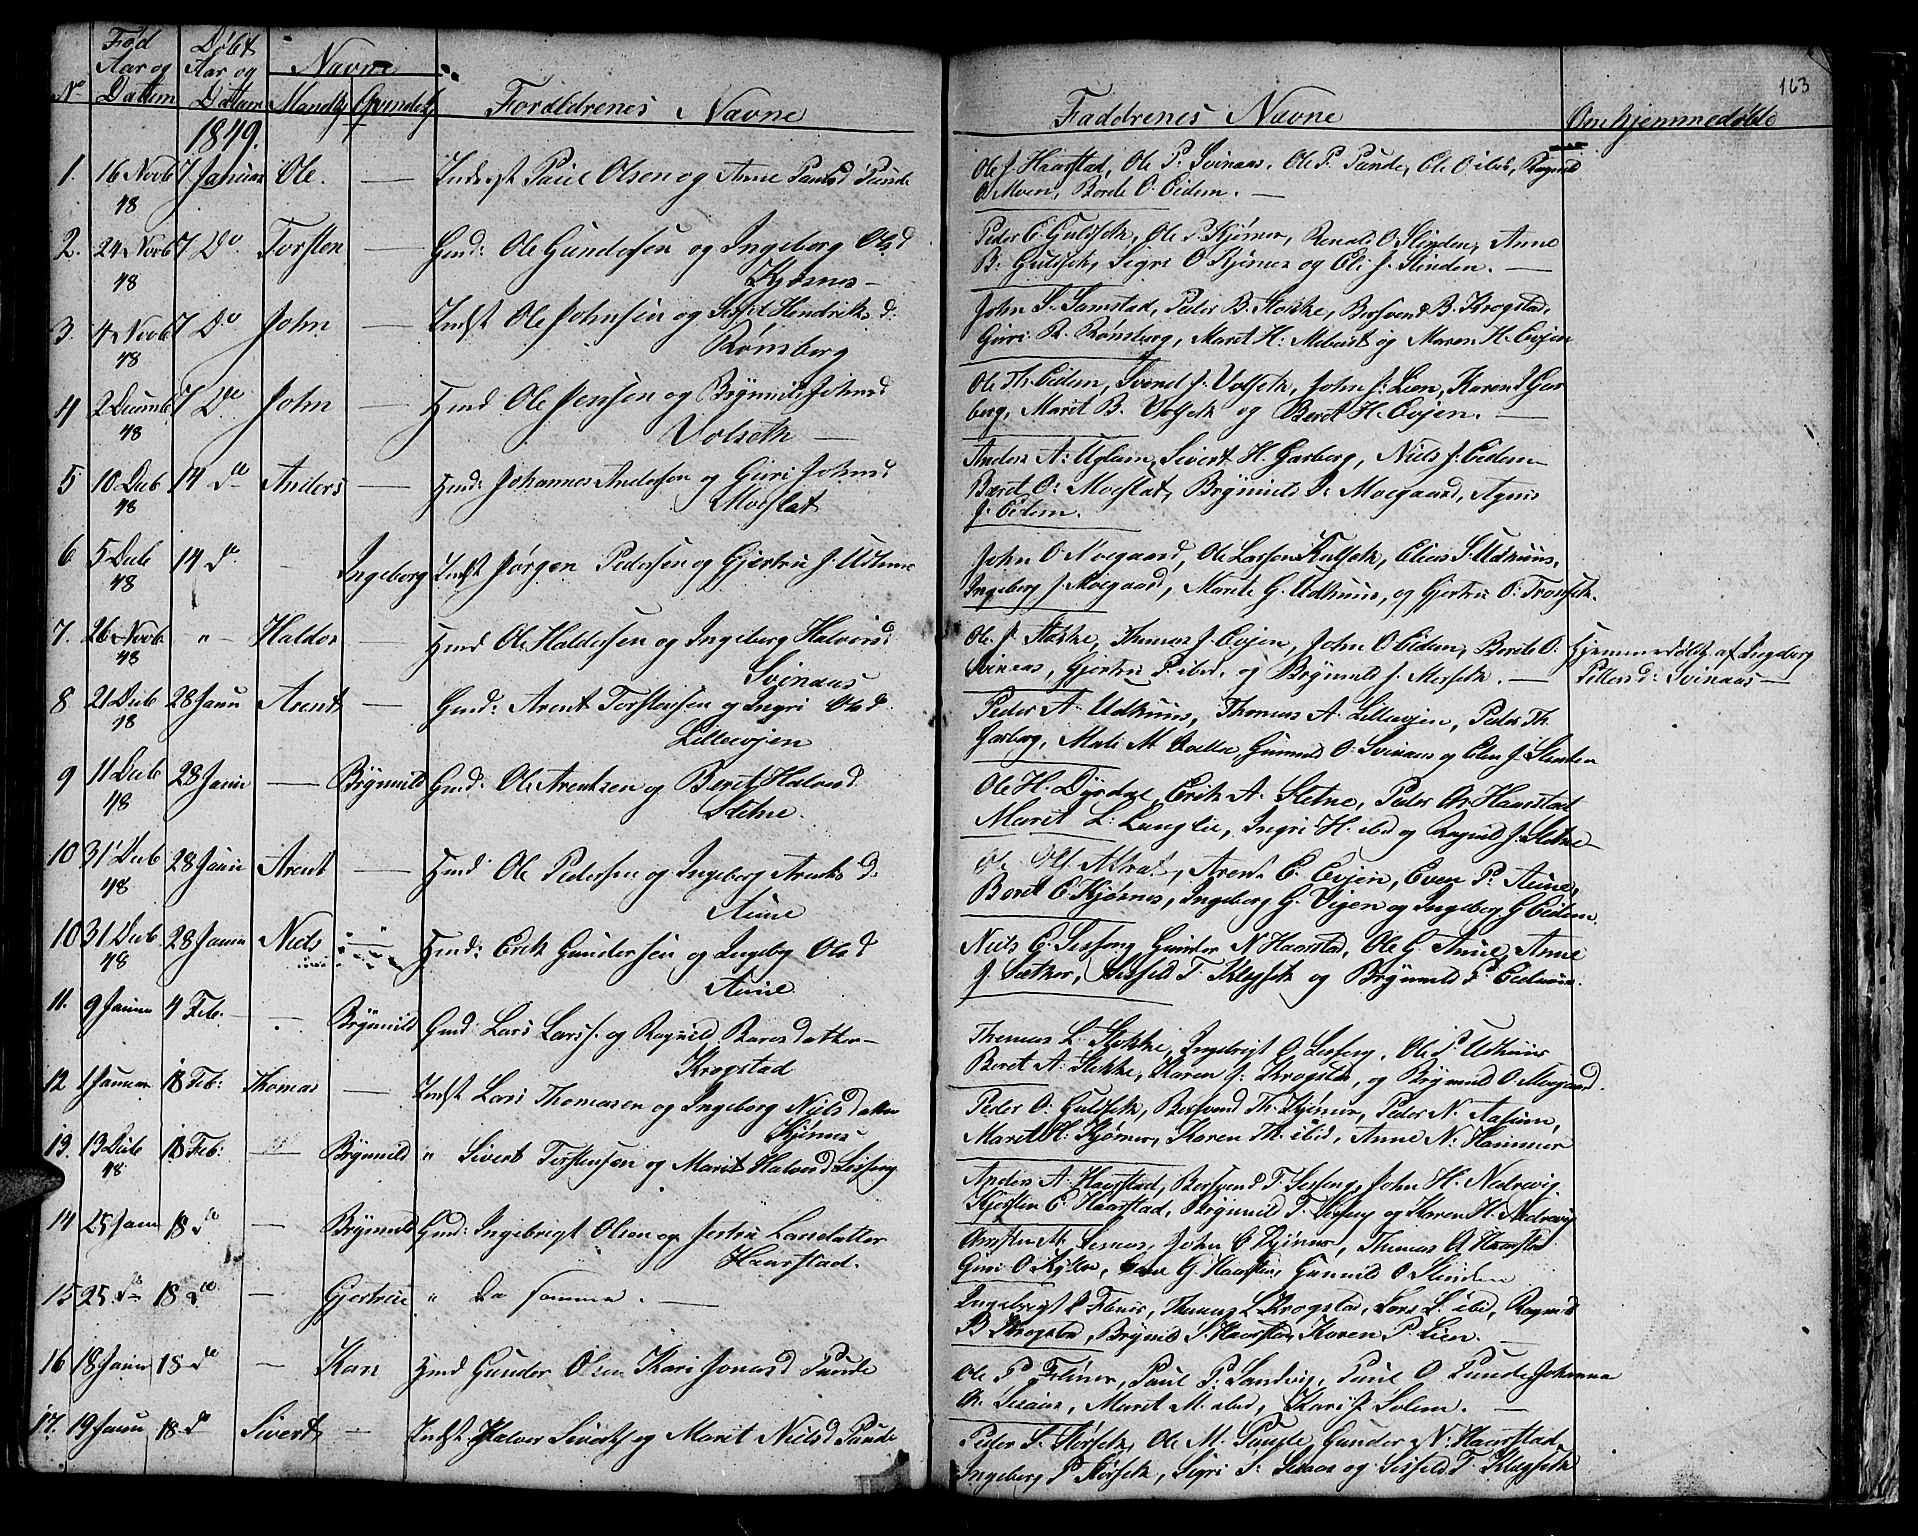 163
Fød Aar og Datum
Døbt Aar og Datum
Navne
No
Mandkj
Qvindekj
Forældrenes Navne
Faddrenes Navne
Om hjemmedøbt
1849.
1. 16 Novb 48 7 Januar Ole. — Indrst Paul Olsen og Anne Paulsd Punde
Ole J Haarstad, Ole P. Svinaas, Ole P. Punde, Ole O ibd, Ragnild
O Moen, Borete O. Eidem. —
2. 24 Novb 48 7 Do Torsten — Gmd: Ole Gundersen og Ingeborg Olsd
Kjøsnes —
Peder E. Guldseth, Ole P Kjøsnes, Renald O Slinden, Anne
B. Guldseth, Sigri O Kjøsnes og Eli J. Slinden. —
3. 4 Novb 48 7 Do John — Indst Ole Johnsen og Sissel Hendriksd:
Rønsberg
John S. Samstad, Peder B. Stokke, Bersvend B. Krogstad,
Guri R. Rønsberg, Marit H. Mebust og Maren H. Evjen
4 2 Decemb 48 7 Do John — Hmd Ole Jensen og Brynnild Johnsd
Volseth —
Ole Th. Eidem, Svend J. Volseth, John J. Lien, Karen J Gar
berg, Marit B. Volseth og Beret H. Evjen. —
5 10 Decb 48 14 do Anders — Hmd: Johannes Andersen og Guri Johnsd
Moestad
Anders A: Uglem, Sivert H. Garberg, Niels J. Eidem
Beret O: Moestad, Brynnild J: Moegaard, Agnis
J. Eidem.
6 5 Decb 48 14 do — Ingeborg Indst Jørgen Pedersen og Gjertru J. Udhuus
John O Moegaard, Ole Larsen Kulseth, Elias S. Udhuus,
Ingeborg J. Moegaard, Marit G. Udhuus, og Gjertru O: Tronseth.
7. 26 Novb 48 " — Haldor Hmd Ole Haldorsen og Ingeborg Halvorsd
Svinaas
Ole J. Stokke, Thomas J. Evjen, John O Eidem, Borete O:
Svinaas, Gjertru P. ibid, og Brynnild J. Morseth. —
Hjemmedøbt af Ingeborg
Pedersd: Svinaas —
8 21 Decb 48 28 Janu Arent — Gmd: Arent Torstensen og Ingri Olsd
Lillevjen
Peder A. Udhuus, Thomas A. Lillevjen, Peder Th.
Garberg, Mali M Gunnild O: Svinaas og Elen J. Slinden
9 11 Decb 48 28 Janu — Brynnild Gmd: Ole Arentsen og Beret Halvorsd
Sletne.
Ole H. Dyrdal, Erik A. Sletne, Peder Haarstad
Marit L: Langlie, Ingri H. ibid og Ragnild J. Sletne
10 31 Decb 48 28 Janu Arent — Hmd Ole Pedersen og Ingeborg Arentsd:
Aune
Ole Alstad, Arent E. Evjen, Even P. Aune,
Beret E Kjøsnes, Ingeborg G. Vigen og Ingeborg G Eidem.
10 31 Decb 48 28 Janu Niels — Hmd: Erik Gundersen og Ingebg Olsd
Aune
Niels E. Sesseng, Gunder N Haarstad, Ole G. Aune, Anne
J. Sæther, Sisfeld T. Klegseth og Brynnild P. Eidem.
11. 9 Janua 4 Feb. — Brynnild Gmd: Lars Larss. og Ragnild Baresdatter —
Krogstad
Thomas L. Stokke, Ingebrigt O Sesseng, Ole P Udhuus
Beret A: Stokke, Karen J: Krogstad, og Brynnild O Moegaard.
12 1 Januar 18 Feb: Thomas — Indst Lars Thomasen og Ingeborg Nielsdatter
Kjøsnes
Peder O: Guldseth, Bersvend Th. Kjøsnes, Peder N. Aasum,
Marit H: Kjøsnes, Karen Th. ibid, Anne N: Hammer
13. 13 Decb 48 18 Feb: Brynnild " Sivert Torstensen og Marit Halvorsd Sesseng
Anders A. Haarstad, Bersvend T. Sesseng, John H. Nedrevig
Kjersten E. Haarstad, Brynnild T. Sesseng og Karen H. Nedrevig
14 25 Janu 18 do — Brynnild Gmd: Ingebrigt Olsen og Jertru Larsdatter
Haarstad.
John E Kjøsnes, Thomas A Haarstad
Guri O G. Haarstad, Gunnild O Slinden
15 25 do 18 do — Gjertrue " De samme. —
Ingebrigt Thomas L Krogstad, Lars L. ibid, Ragnild
B Krogstad, Brynnild S. Haarstad, Karen P. Lien. —
16 18 Janu 18 do — Kari Hmd Gunder Olsen Kari Jonasd Punde
Ole P Paul P. Sandvig, Paul O Punde, Johanna
Marit M. ibid, Kari J Solem. —
17. 19 Janu 18 do Sivert — Indst. Halvor Siverts og Marit Nielsd Punde
Peder S. Størseth, Ole M. Punde, Gunder N. Haarstad
Ingeborg P Størseth, Sigri og Sisfeld T. Klegseth